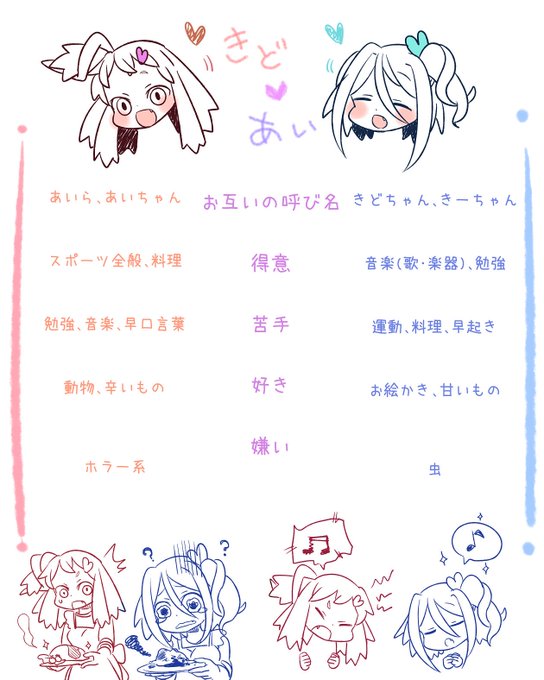 きど
あい
あいら、あいちゃん お互いの呼び名 きどちゃん、きーちゃん
スポーツ全般、料理 得意 音楽(歌・楽器)、勉強
勉強、音楽、早口言葉 苦手 運動、料理、早起き
動物、辛いもの 好き お絵かき、甘いもの
嫌い
ホラー系 虫
? ?